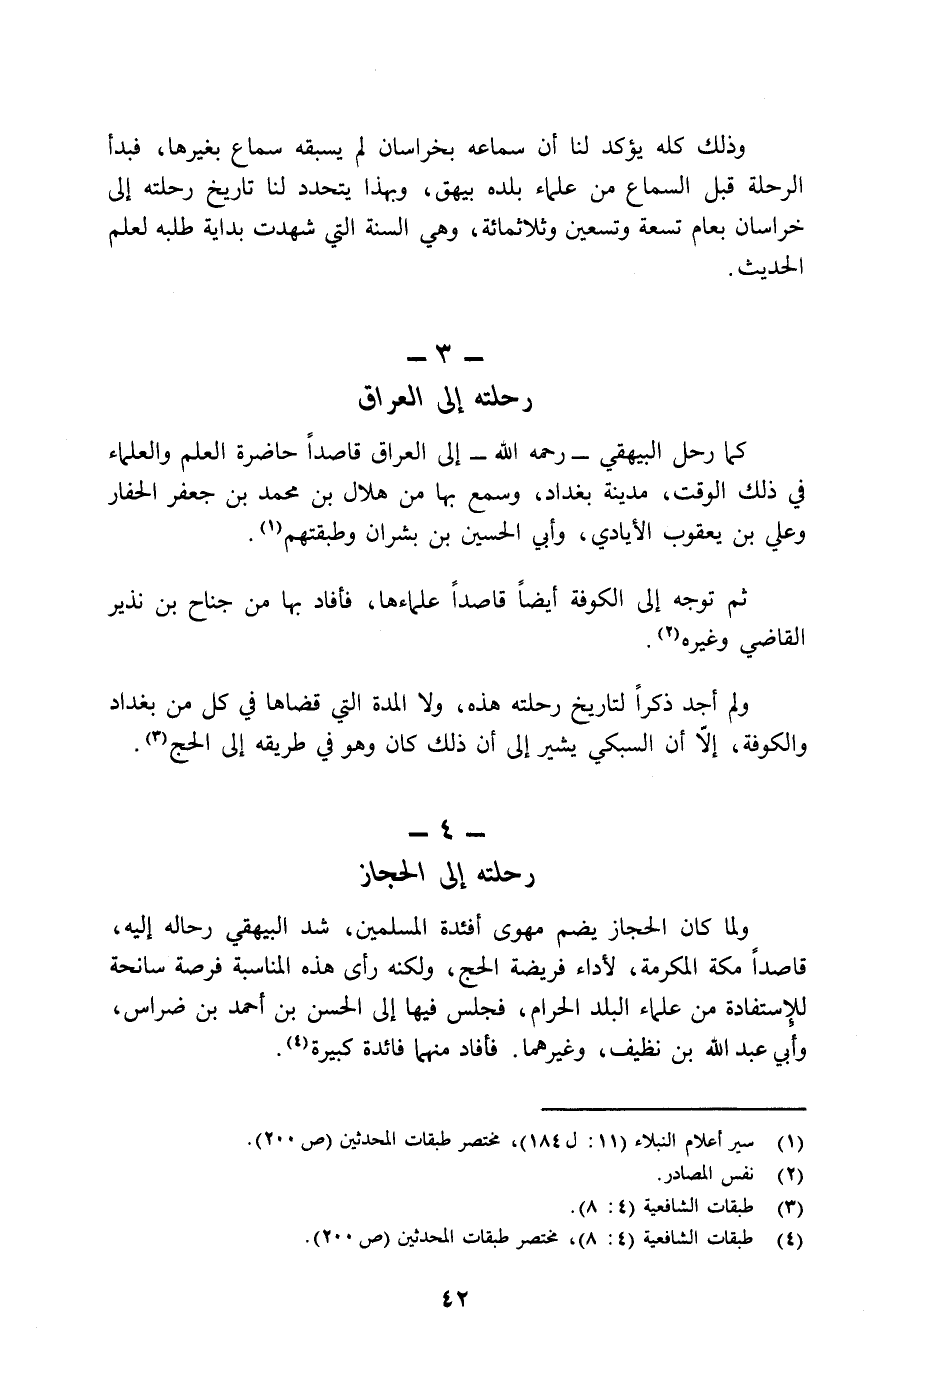 وذلك كله يؤكد لنا أن سماعه بخراسان لم يسبقه سماع بغيرها، فبدأ
الرحلة قبل السماع من علماء بلده بيهق، وبهذا يتحدد لنا تاريخ رحلته إلى
خراسان بعام تسعة وتسعين وثلاثمائة، وهي السنة التي شهدت بداية طلبه لعلم
الحديث.
ـ ٣ ـ
رحلته إلى العراق
كما رحل البيهقي ـ رحمه الله ـ إلى العراق قاصداً حاضرة العلم والعلماء
في ذلك الوقت، مدينة بغداد، وسمع بها من هلال بن محمد بن جعفر الحفار
وعلي بن يعقوب الأيادي، وأبي الحسين بن بشران وطبقتهم(١).
ثم توجه إلى الكوفة أيضاً قاصداً علماءها، فأفاد بها من جناح بن نذير
القاضي وغيره(٢).
ولم أجد ذكراً لتاريخ رحلته هذه، ولا المدة التي قضاها في كل من بغداد
والكوفة، إلّا أن السبكي يشير إلى أن ذلك كان وهو في طريقه إلى الحج(٣).
ـ ٤ ـ
رحلته إلى الحجاز
ولما كان الحجاز يضم مهوى أفئدة المسلمين، شد البيهقي رحاله إليه،
قاصداً مكة المكرمة، لأداء فريضة الحج، ولكنه رأى هذه المناسبة فرصة سانحة
للإستفادة من علماء البلد الحرام، فجلس فيها إلى الحسن بن أحمد بن ضراس،
وأبي عبد الله بن نظيف، وغيرهما. فأفاد منهما فائدة كبيرة(٤).
(١) سير أعلام النبلاء (١١: ل ١٨٤)، مختصر طبقات المحدثين (ص ٢٠٠).
(٢) نفس المصادر.
(٣) طبقات الشافعية (٤: ٨).
(٤) طبقات الشافعية (٤: ٨)، مختصر طبقات المحدثين (ص ٢٠٠).
٤٢